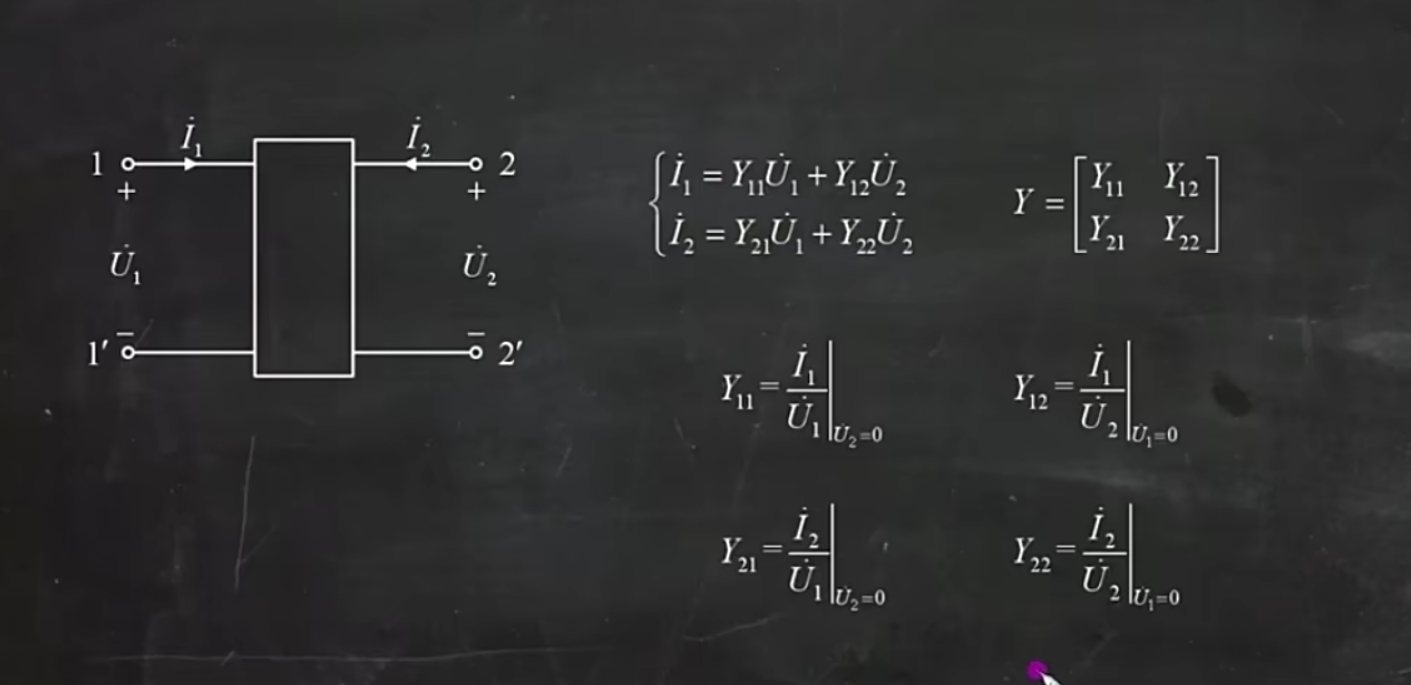 1 + U̇₁ − 1′
İ₁
İ₂
2 + U̇₂ − 2′
{ İ₁ = Y₁₁U̇₁ + Y₁₂U̇₂
İ₂ = Y₂₁U̇₁ + Y₂₂U̇₂
Y = [ Y₁₁ Y₁₂
Y₂₁ Y₂₂ ]
Y₁₁ = İ₁/U̇₁ |U̇₂=0
Y₁₂ = İ₁/U̇₂ |U̇₁=0
Y₂₁ = İ₂/U̇₁ |U̇₂=0
Y₂₂ = İ₂/U̇₂ |U̇₁=0